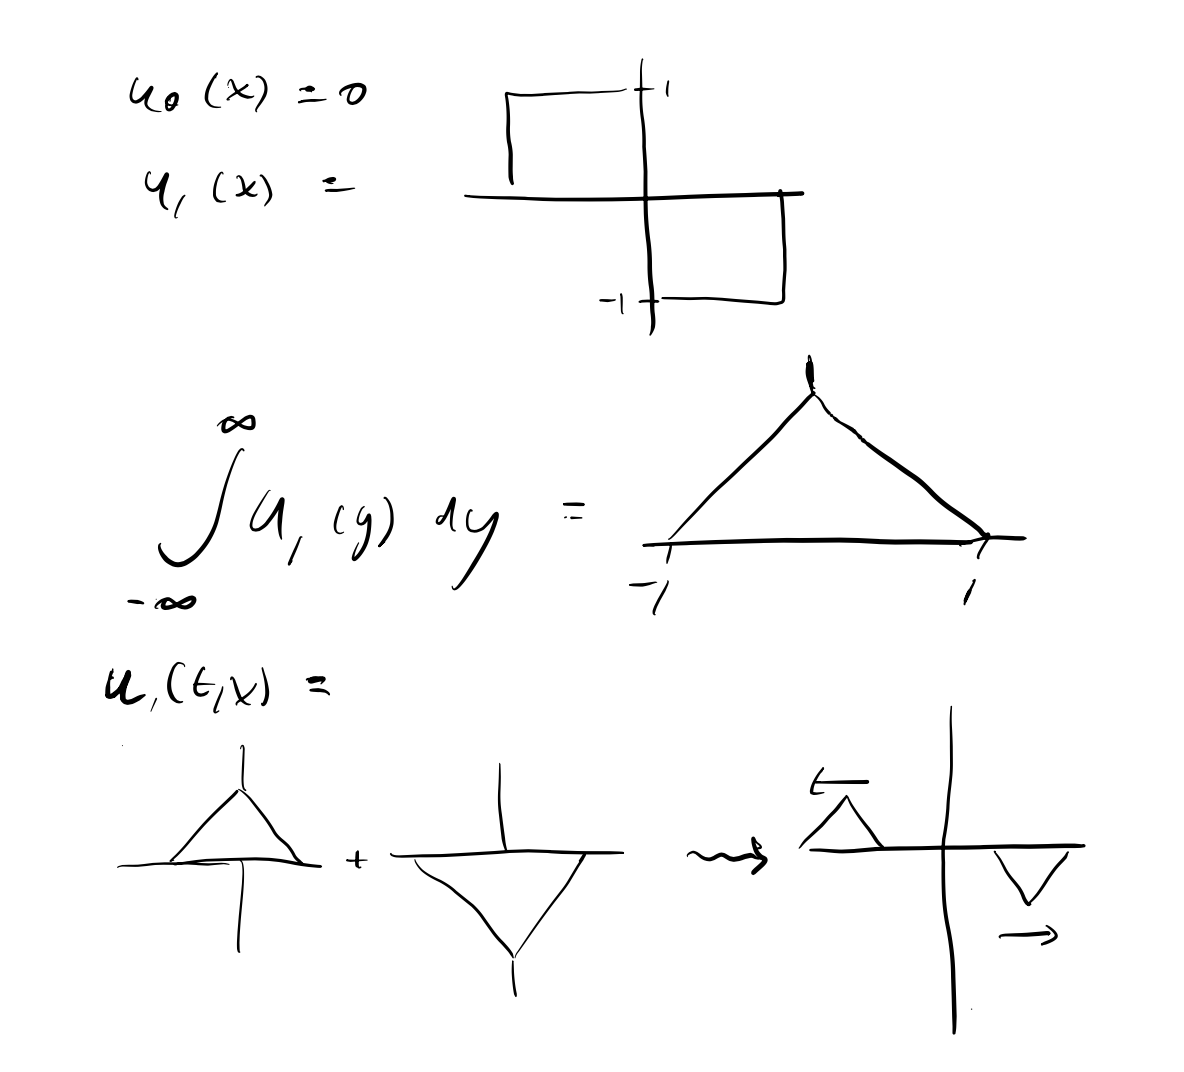 u₀(x) = 0
1
u₁(x) =
-1
∫_{-∞}^{∞} u₁(y) dy =
-1 1
u₁(t,x) =
+